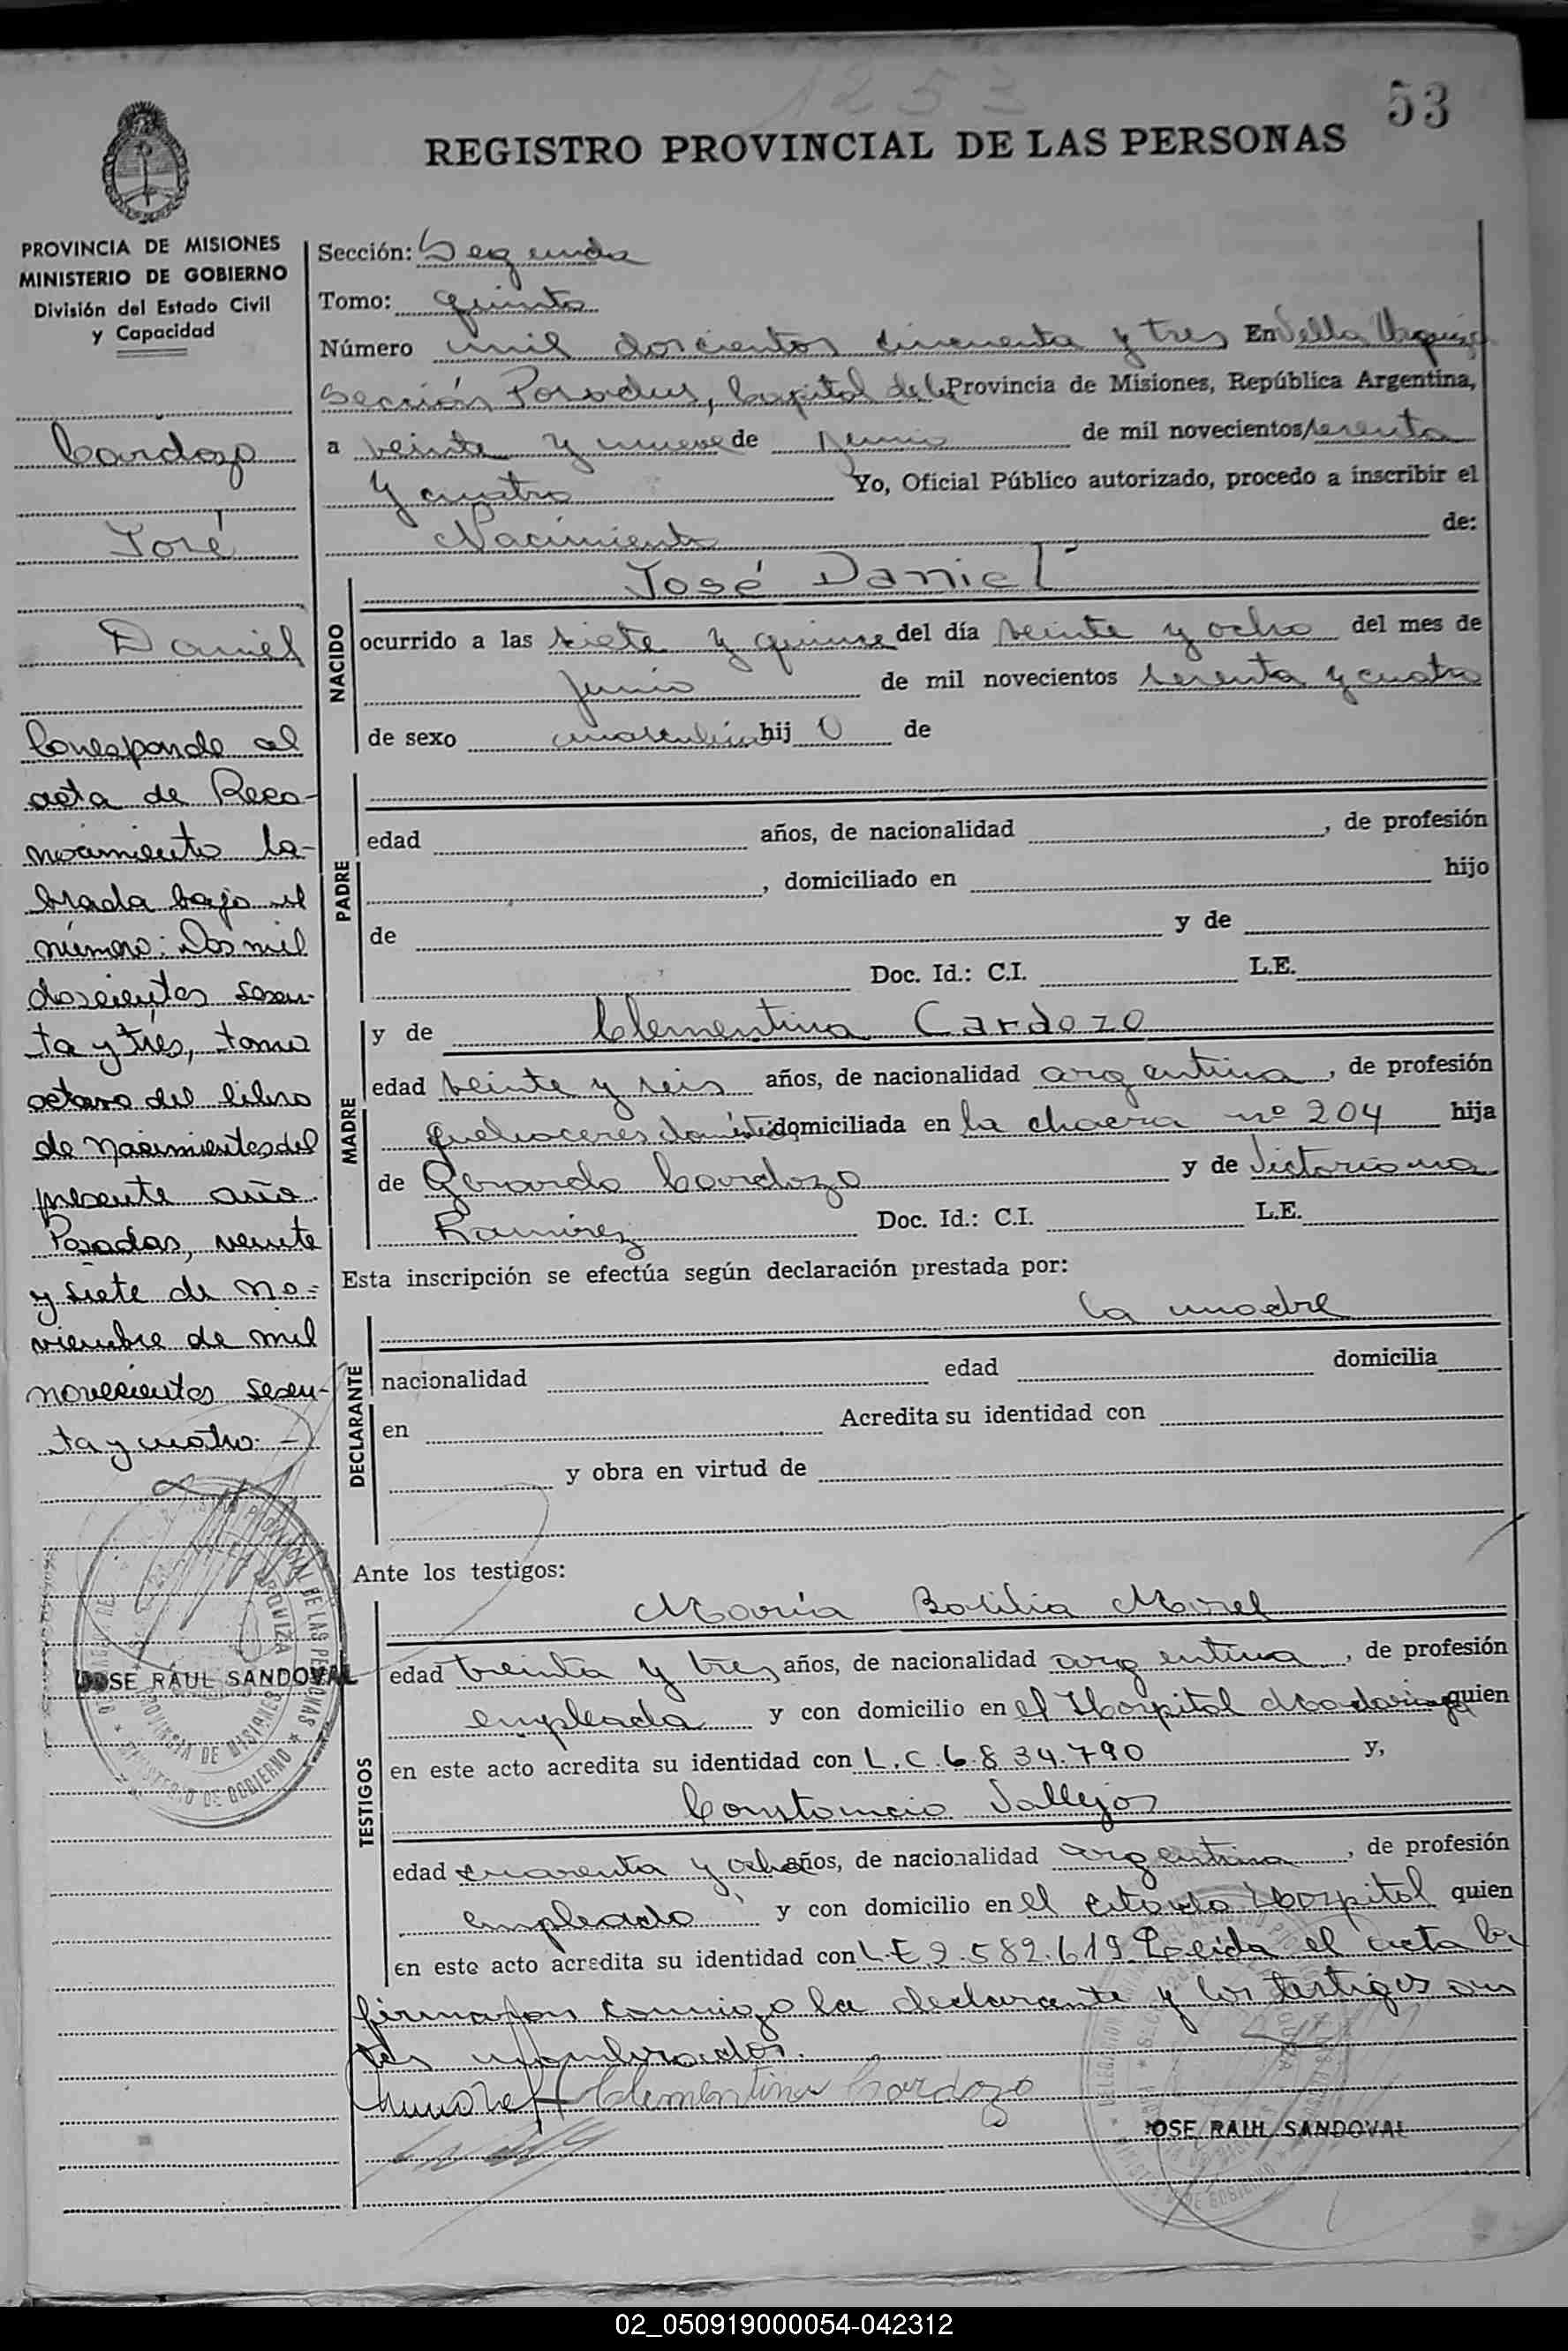 1253
53
REGISTRO PROVINCIAL DE LAS PERSONAS
PROVINCIA DE MISIONES
MINISTERIO DE GOBIERNO
División del Estado Civil
y Capacidad
Cardozo
José
Daniel
Corresponde al
acta de Reco-
nocimiento la-
brada bajo el
número: Dos mil
doscientos sesen-
ta y tres, tomo
octavo del libro
de Nacimientos del
presente año.
Posadas, veinte
y siete de no=
viembre de mil
novecientos sesen-
ta y cuatro.-
JOSE RAUL SANDOVAL
Sección: Segunda
Tomo: quinto
Número mil doscientos cincuenta y tres En Villa Urquiza
Sección Posadas, Capital de la Provincia de Misiones, República Argentina,
a veinte y nueve de junio de mil novecientos sesenta
y cuatro Yo, Oficial Público autorizado, procedo a inscribir el
Nacimiento de:
NACIDO
José Daniel
ocurrido a las siete y quince del día veinte y ocho del mes de
junio de mil novecientos sesenta y cuatro
de sexo masculino hij o de
PADRE
edad años, de nacionalidad , de profesión
, domiciliado en hijo
de y de
Doc. Id.: C.I. L.E.
MADRE
y de Clementina Cardozo
edad veinte y seis años, de nacionalidad argentina , de profesión
quehaceres domésticos domiciliada en la chacra nº 204 hija
de Gerardo Cardozo y de Victoriana
Ramírez Doc. Id.: C.I. L.E.
Esta inscripción se efectúa según declaración prestada por:
DECLARANTE
la madre
nacionalidad edad domicilia
en Acredita su identidad con
y obra en virtud de
Ante los testigos:
TESTIGOS
María Morel
edad treinta y tres años, de nacionalidad argentina , de profesión
empleada y con domicilio en el Hospital Madariaga quien
en este acto acredita su identidad con L.C. 6.834.790 y,
Constancio Vallejos
edad cuarenta y ocho años, de nacionalidad argentina , de profesión
empleado y con domicilio en el citado Hospital quien
en este acto acredita su identidad con L.E 2.582.619 Leida el acta la
firmaron conmigo la declarante y los testigos an
tes nombrados.
Clementina Cardozo
JOSE RAUL SANDOVAL
02_050919000054-042312